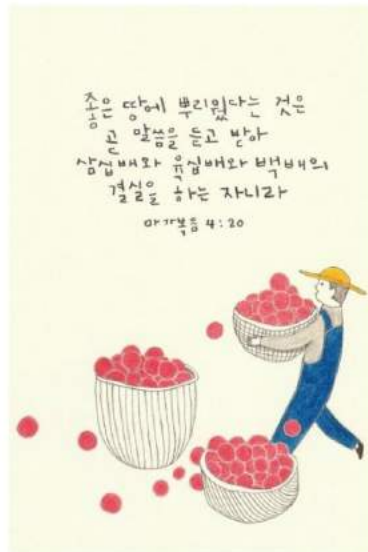 좋은 땅에 뿌리웠다는 것은
곧 말씀을 듣고 받아
삼십배와 육십배와 백배의
결실을 하는 자니라
마가복음 4:20